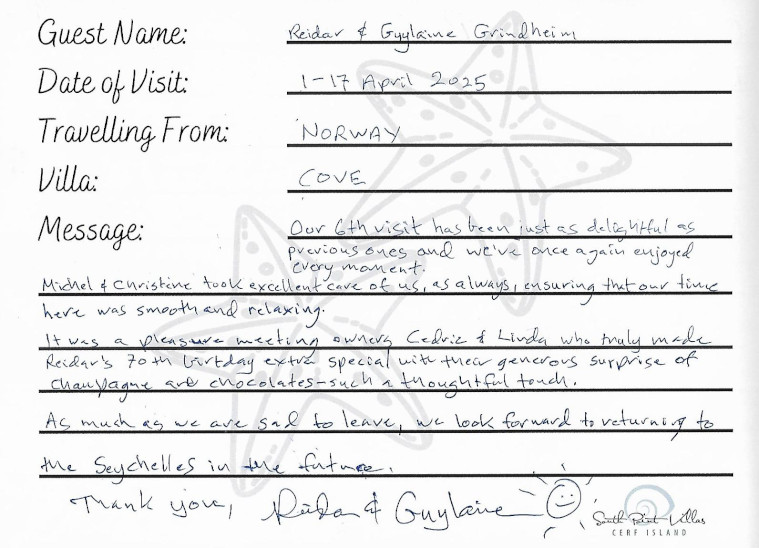 Guest Name: Reidar & Guylaine Grindheim
Date of Visit: 1-17 April 2025
Travelling From: NORWAY
Villa: COVE
Message: Our 6th visit has been just as delightful as
previous ones and we've once again enjoyed
every moment.
Michel & Christine took excellent care of us, as always, ensuring that our time
here was smooth and relaxing.
It was a pleasure meeting owners Cedric & Linda who truly made
Reidar's 70th birtday extra special with their generous surprise of
champagne and chocolates-such a thoughtful touch.
As much as we are sad to leave, we look forward to returning to
the Seychelles in the future.
Thank you, Reidar & Guylaine
South Point Villas
CERF ISLAND